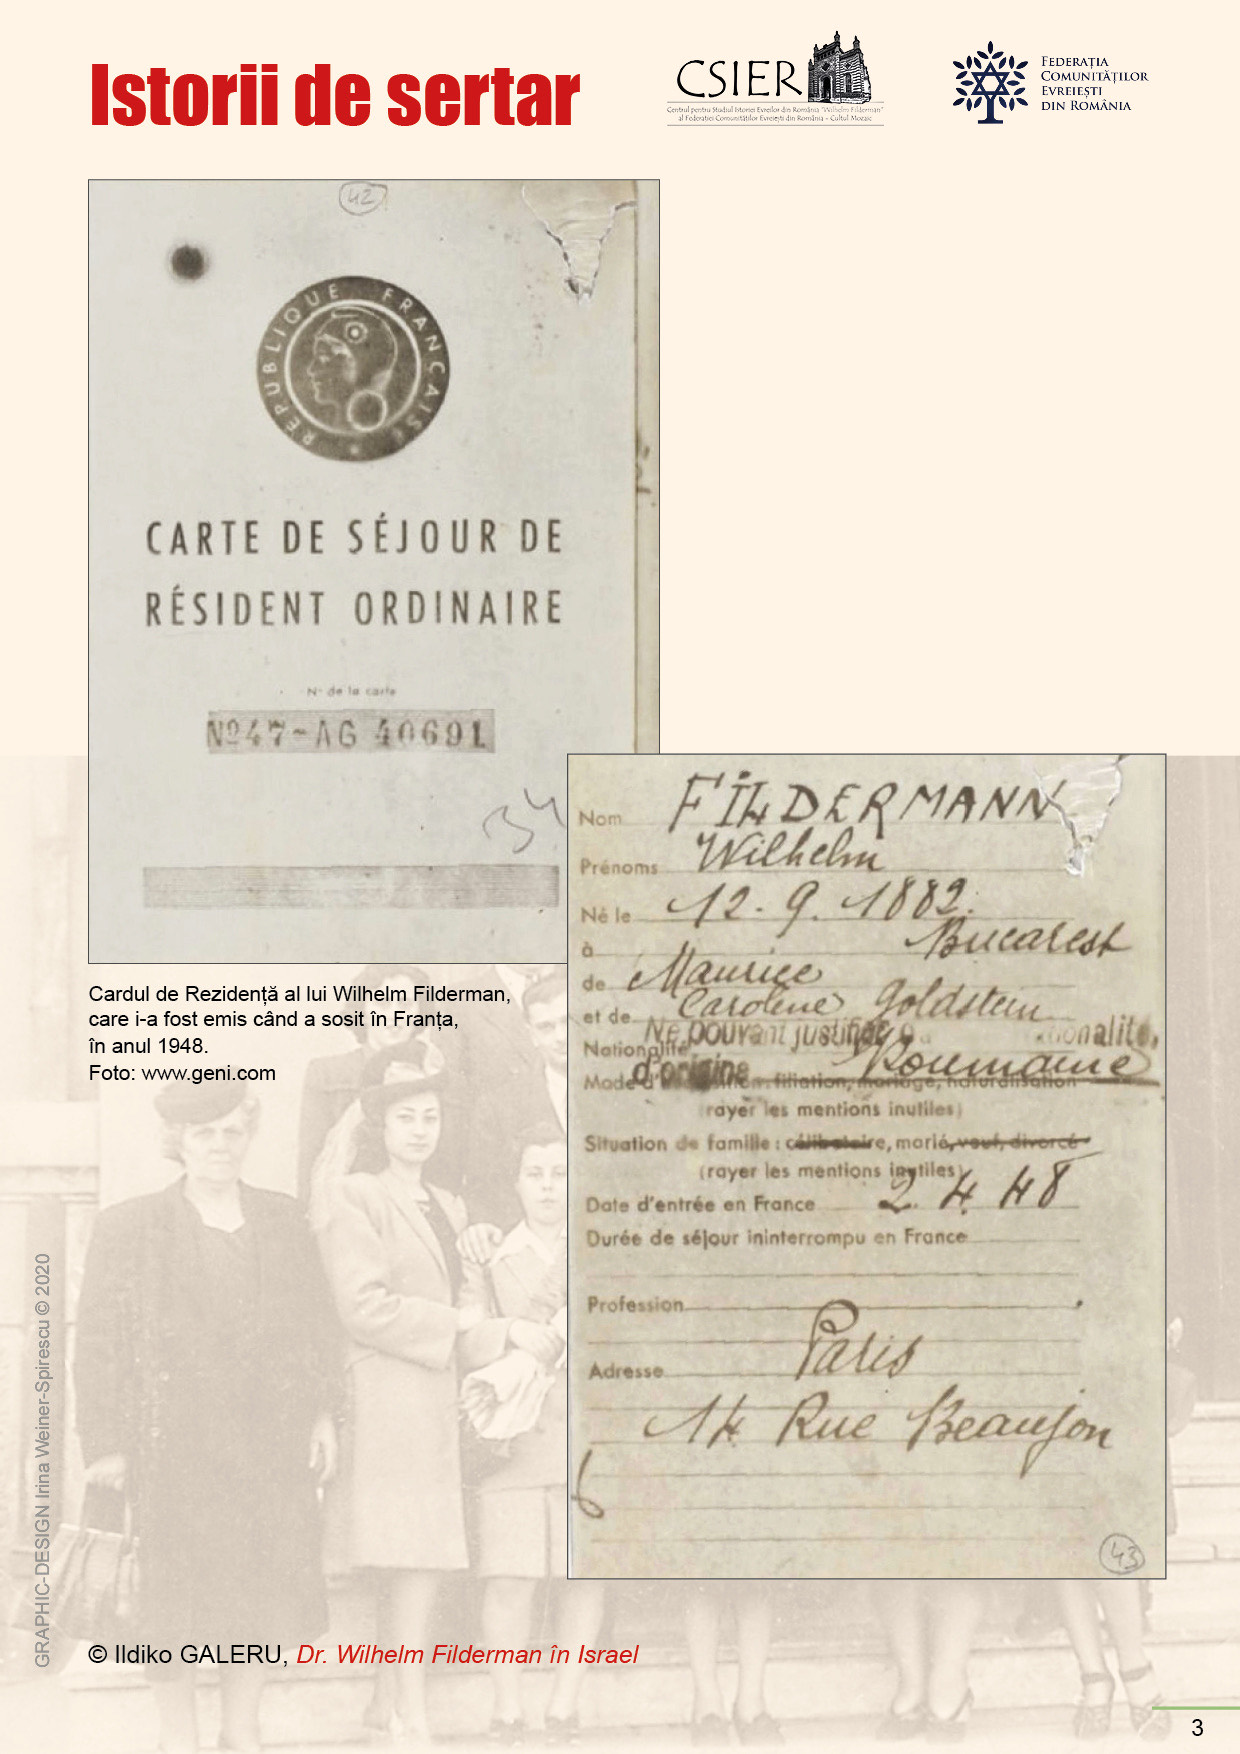 Istorii de sertar
CSIER
Centrul pentru Studiul Istoriei Evreilor din România "Wilhelm Filderman"
al Federației Comunităților Evreiești din România - Cultul Mozaic
FEDERAȚIA
COMUNITĂȚILOR
EVREIEȘTI
DIN ROMÂNIA
42
RÉPUBLIQUE FRANÇAISE
CARTE DE SÉJOUR DE
RÉSIDENT ORDINAIRE
No de la carte
No 47-AG 40691
34
Cardul de Rezidență al lui Wilhelm Filderman,
care i-a fost emis când a sosit în Franța,
în anul 1948.
Foto: www.geni.com
Nom FILDERMANN
Prénoms Wilhelm
Né le 12. 9. 1882.
à Bucarest
de Maurice
et de Caroline Goldstein
Ne pouvant justifier
Nationalité Roumaine
d'origine
filiation, mariage, naturalisation
(rayer les mentions inutiles)
Situation de famille : célibataire, marié, veuf, divorcé
(rayer les mentions inutiles)
Date d'entrée en France 2. 4. 48
Durée de séjour ininterrompu en France
Profession
Adresse Paris
14 Rue Beaujon
43
GRAPHIC-DESIGN Irina Weiner-Spirescu © 2020
© Ildiko GALERU, Dr. Wilhelm Filderman în Israel
3